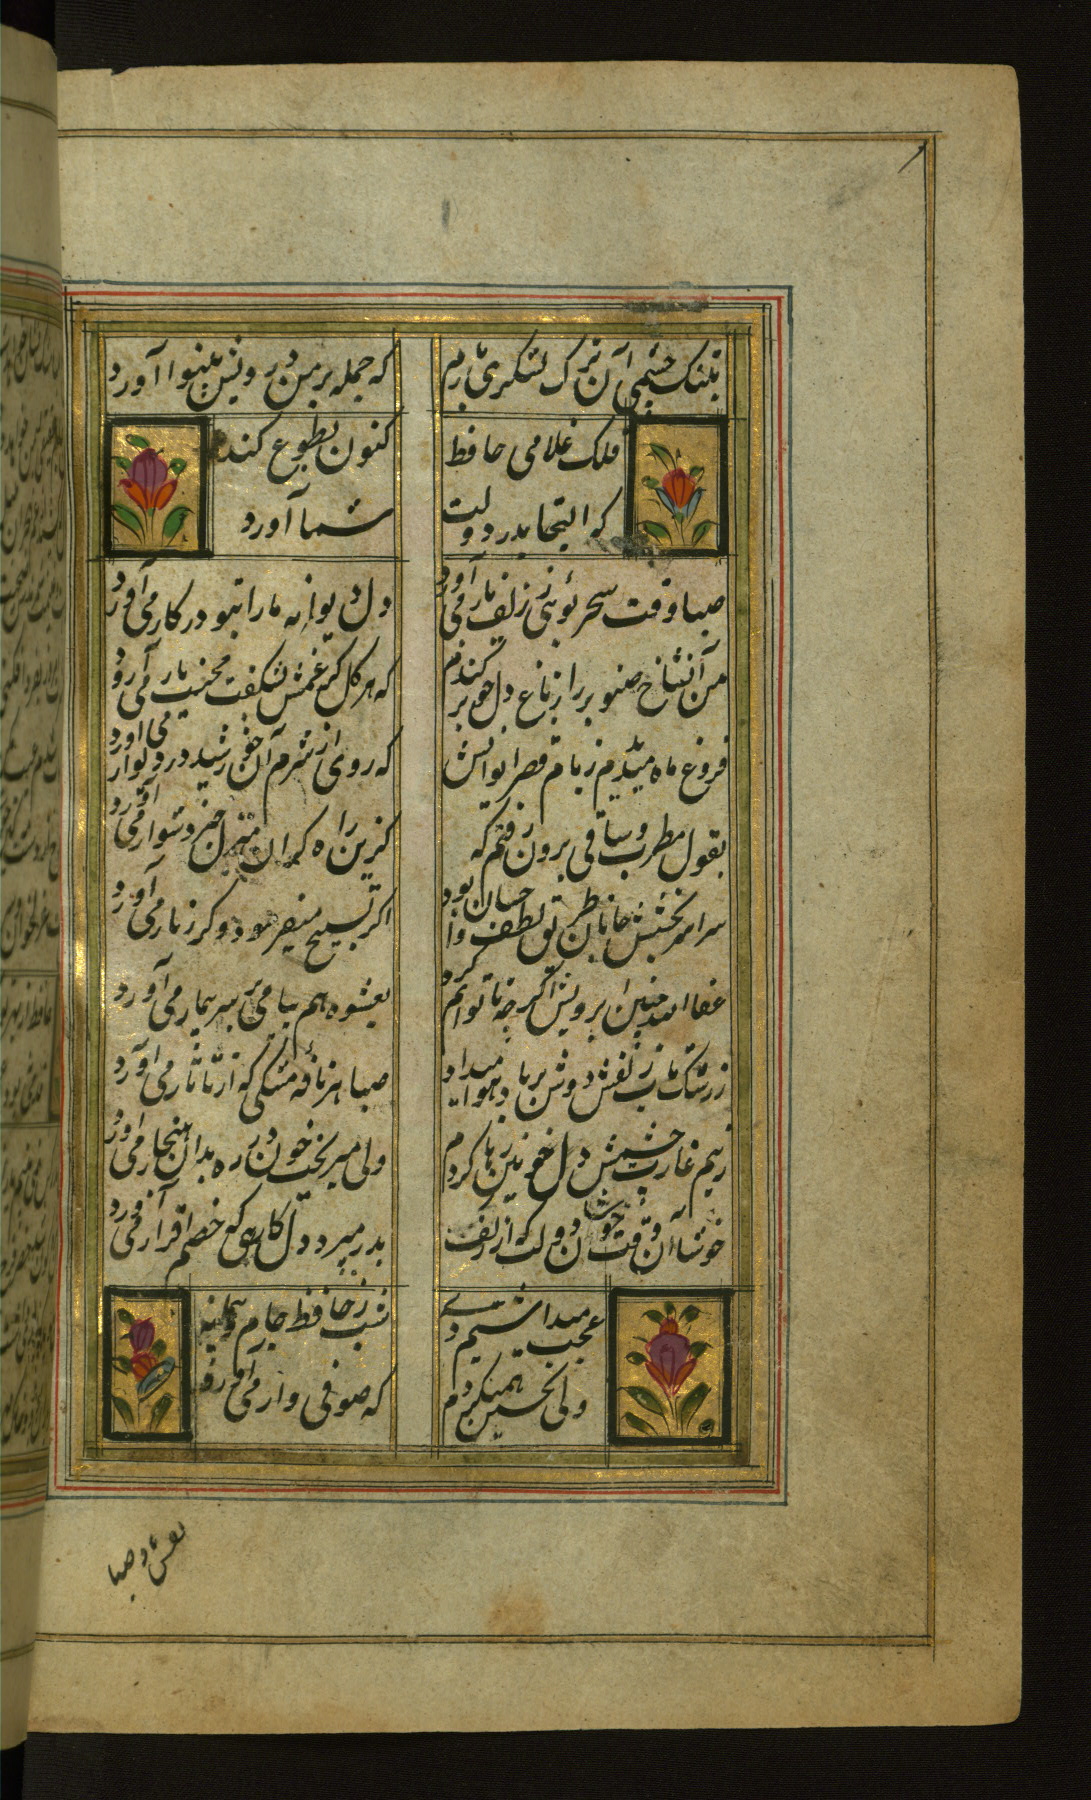 بتنک چشمی آن ترک لشکری نازم
که حمله بر من درویش بینوا آورد
فلک غلامی حافظ
کنون بطوع کند
که التجا بدر دولت
شما آورد
صبا وقت سحر بوئی ز زلف یار می آورد
دل دیوانه ما را بنو در کار می آورد
من آن شاخ صنوبر را ز باغ دل برکندم
که هر گل کز غمش بشکفت محنت بار می آورد
فروغ ماه میدیدم ز بام قصر ایوانش
که روی از شرم آن خورشید در دیوار می آورد
بقول مطرب و ساقی برون رفتم که
کزین راه گران منزل خبر دشوار می آورد
سراسر بخشش جانان طریق لطف و احسان بود
اگر تسبیح میفرمود و گر زنار می آورد
عفا الله چین ابرویش اگرچه ناتوانم کرد
بعشوه هم پیامی بر سر بیمار می آورد
ز رشک تاب زلفش دوش بر باد هوا میداد
صبا هر نافه مشکی که از تاتار می آورد
ز بیم غارت چشمش دل خونین رها کردم
ولی میریخت خون در ره بدان هنجار می آورد
خوشا آن وقت و آن دولت که از زلف
بدزدید دل کاری که خصم اقرار می آورد
عجب میداشتم دی
شب ز حافظ جام و پیمانه
ولی بحثش نمیکردم
که صوفی وار می آورد
بعزم و صبا